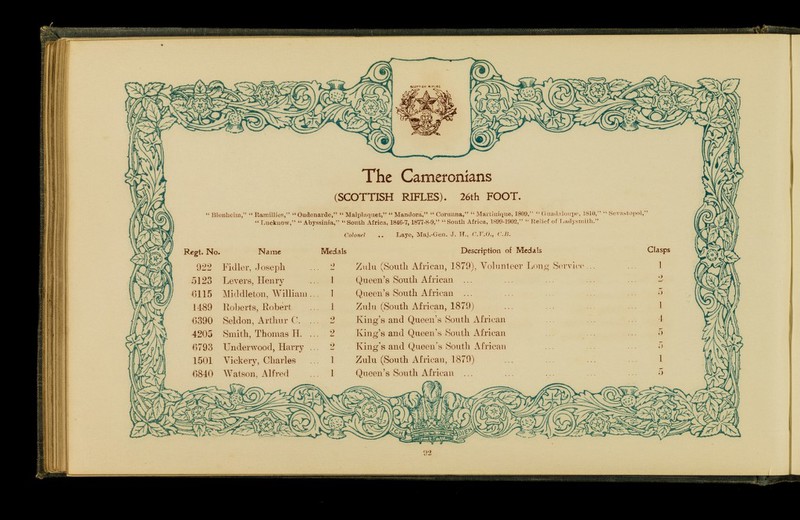 The Cameronians
(SCOTTISH RIFLES). 26th FOOT.
"Blenheim," "Ramillies," "Oudenarde," "Malplaquet," "Mandora," "Corunna," "Martinique, 1809," "Guadaloupe, 1810," "Sevastopol,"
"Lucknow," "Abyssinia," "South Africa, 1846-7, 1877-8-9," "South Africa, 1899-1902," "Relief of Ladysmith."
Colonel .. Laye, Maj.-Gen. J. H., C.V.O., C.B.
Regt. No. Name Medals Description of Medals Clasps
922 Fidler, Joseph ... 2 Zulu (South African, 1879), Volunteer Long Service ... ... 1
5123 Levers, Henry ... 1 Queen's South African ... ... ... ... ... 2
6115 Middleton, William ... 1 Queen's South African ... ... ... ... ... 5
1489 Roberts, Robert ... 1 Zulu (South African, 1879) ... ... ... ... 1
6390 Seldon, Arthur C. ... 2 King's and Queen's South African ... ... ... 4
4205 Smith, Thomas H. ... 2 King's and Queen's South African ... ... ... 5
6793 Underwood, Harry ... 2 King's and Queen's South African ... ... ... 5
1501 Vickery, Charles ... 1 Zulu (South African, 1879) ... ... ... ... 1
6840 Watson, Alfred ... 1 Queen's South African ... ... ... ... ... 5
92